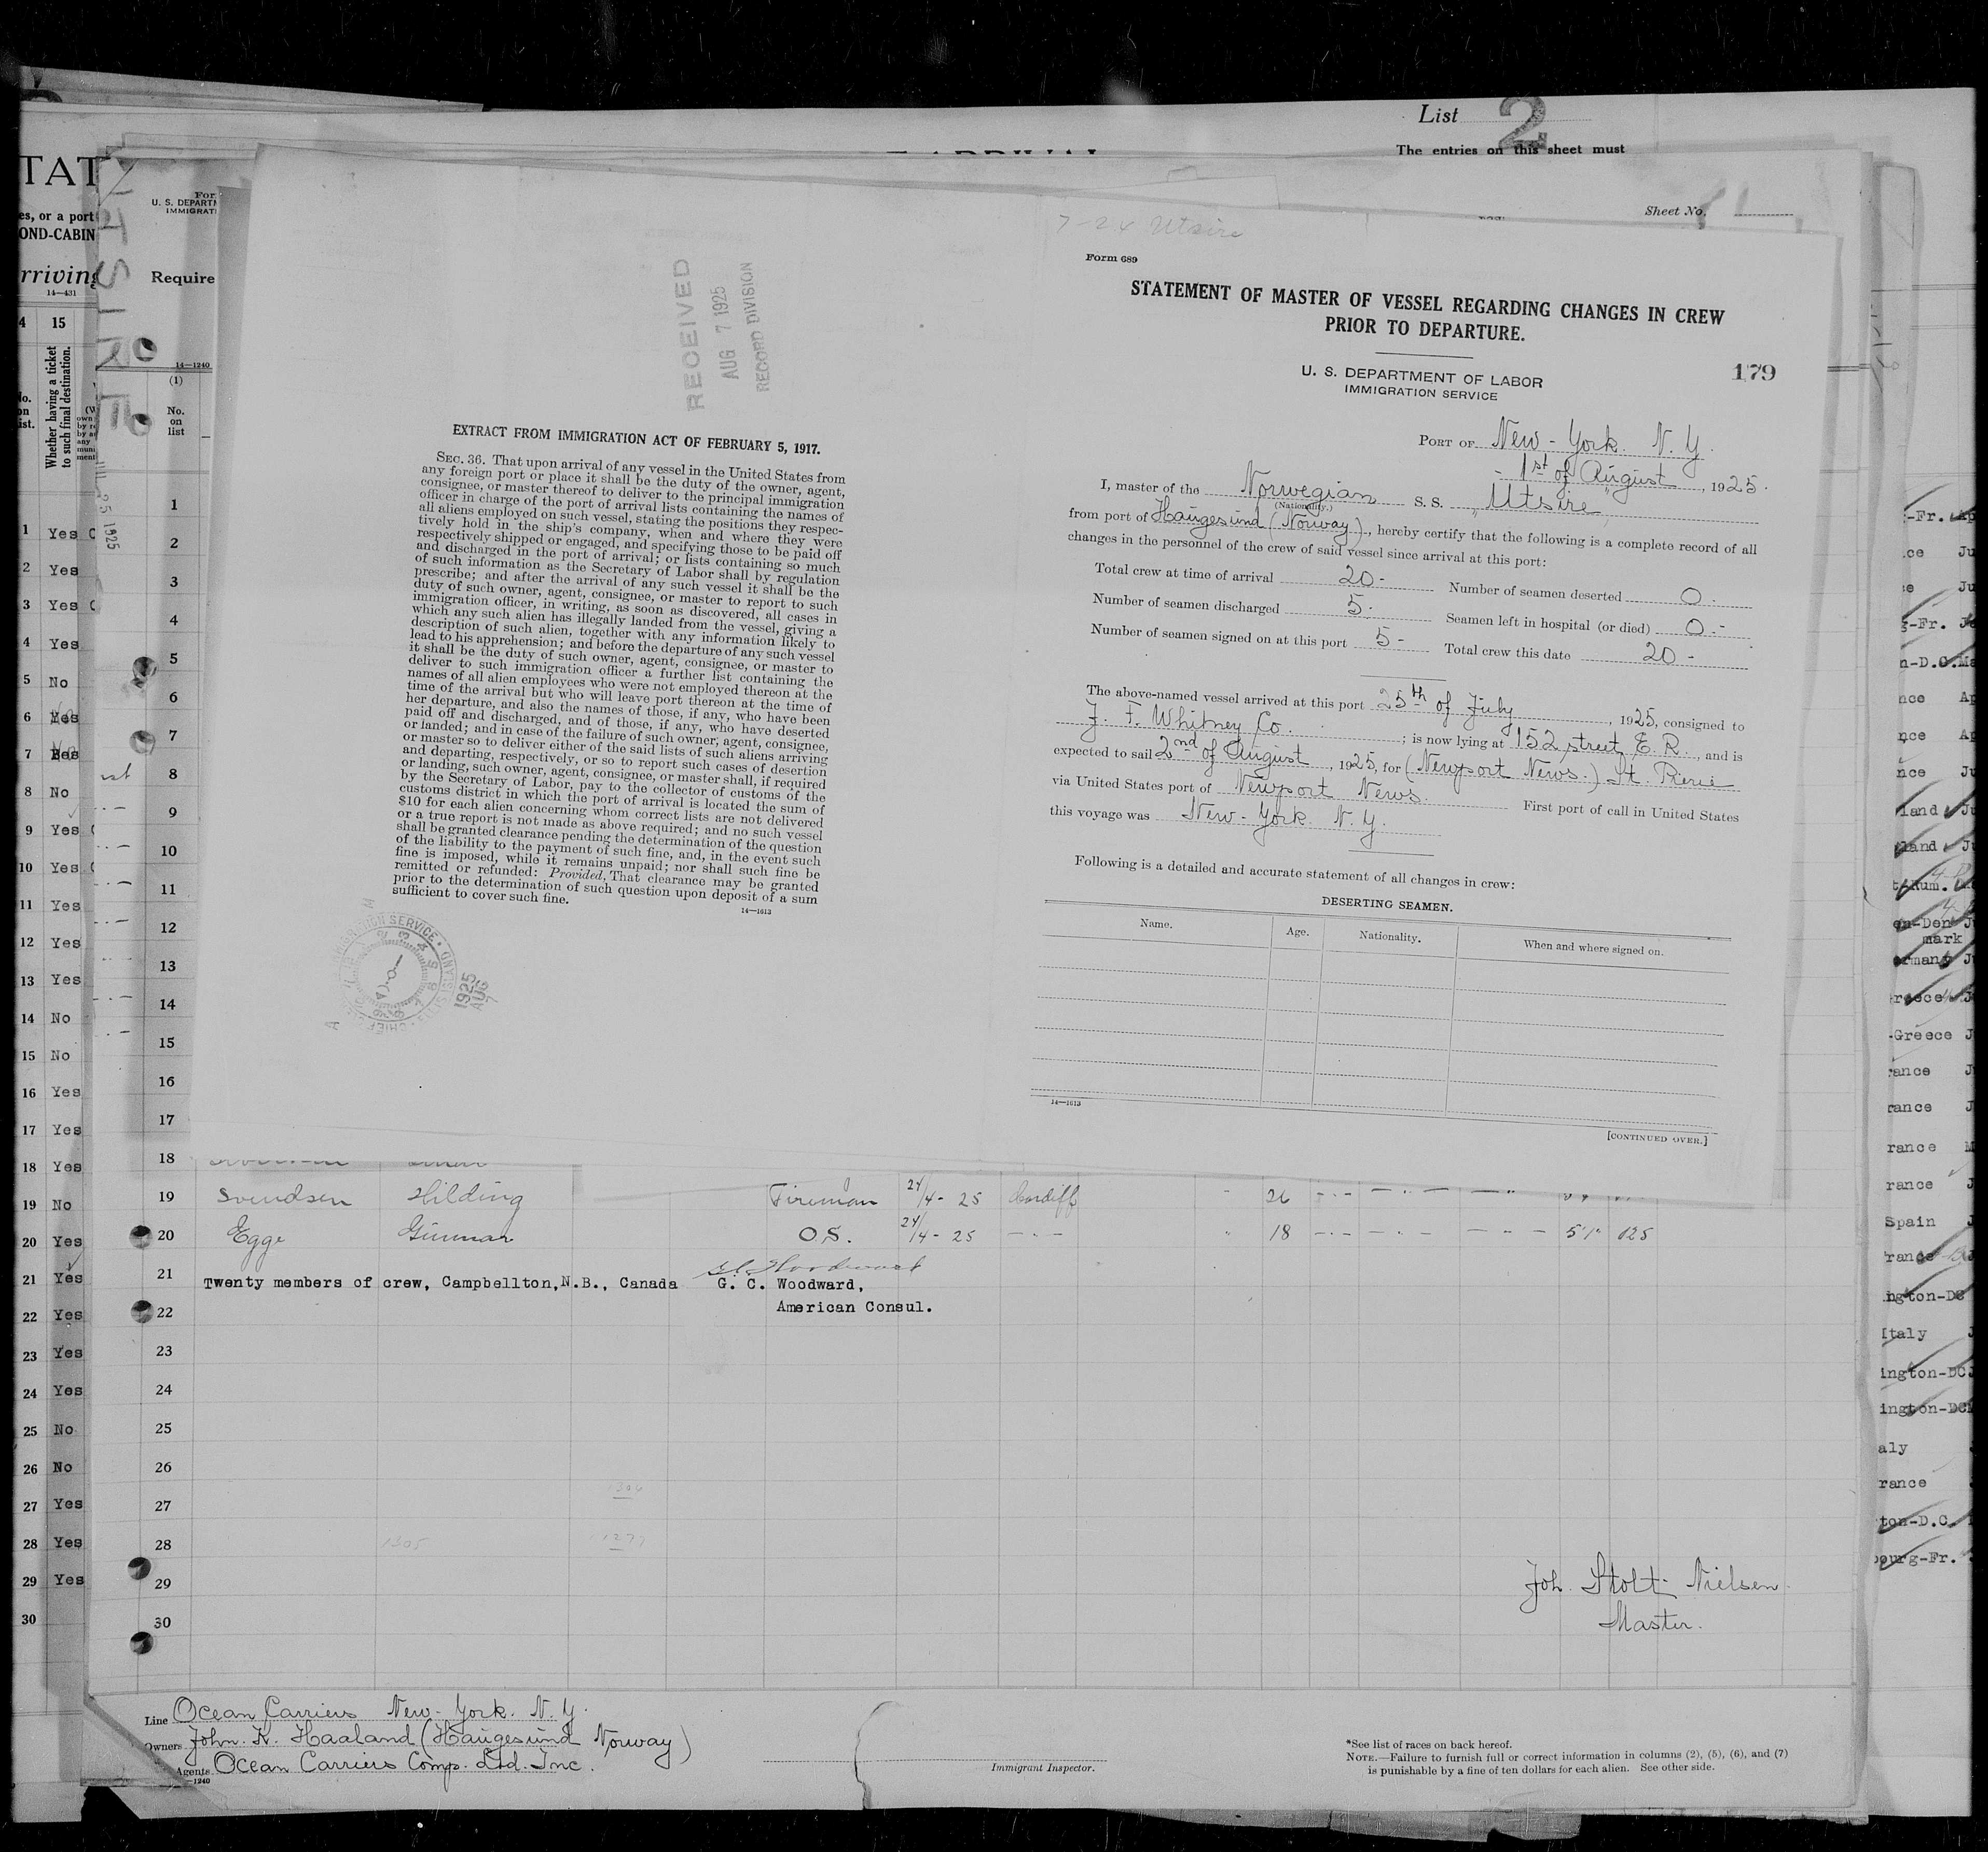 List 2
The entries on this sheet must
Sheet No.
TAT
es, or a port
OND-CABIN
rriving
14—431
4 15
Whether having a ticket
to such final destination.
1 Yes
2 Yes
3 Yes
4 Yes
5 No
6 Yes
7
8 No
9 Yes
10 Yes
11 Yes
12 Yes
13 Yes
14 No
15 No
16 Yes
17 Yes
18 Yes
19 No
20 Yes
21 Yes
22 Yes
23 Yes
24 Yes
25 No
26 No
27 Yes
28 Yes
29 Yes
30
For
U. S. DEPARTM
IMMIGRAT
Require
UTSIRE
JUL 25 1925
14—1240
(1)
No.
on
list
1
2
3
4
5
6
7
8
9
10
11
12
13
14
15
16
17
18
RECEIVED
AUG 7 1925
RECORD DIVISION
EXTRACT FROM IMMIGRATION ACT OF FEBRUARY 5, 1917.
SEC. 36. That upon arrival of any vessel in the United States from
any foreign port or place it shall be the duty of the owner, agent,
consignee, or master thereof to deliver to the principal immigration
officer in charge of the port of arrival lists containing the names of
all aliens employed on such vessel, stating the positions they respec-
tively hold in the ship's company, when and where they were
respectively shipped or engaged, and specifying those to be paid off
and discharged in the port of arrival; or lists containing so much
of such information as the Secretary of Labor shall by regulation
prescribe; and after the arrival of any such vessel it shall be the
duty of such owner, agent, consignee, or master to report to such
immigration officer, in writing, as soon as discovered, all cases in
which any such alien has illegally landed from the vessel, giving a
description of such alien, together with any information likely to
lead to his apprehension; and before the departure of any such vessel
it shall be the duty of such owner, agent, consignee, or master to
deliver to such immigration officer a further list containing the
names of all alien employees who were not employed thereon at the
time of the arrival but who will leave port thereon at the time of
her departure, and also the names of those, if any, who have been
paid off and discharged, and of those, if any, who have deserted
or landed; and in case of the failure of such owner, agent, consignee,
or master so to deliver either of the said lists of such aliens arriving
and departing, respectively, or so to report such cases of desertion
or landing, such owner, agent, consignee, or master shall, if required
by the Secretary of Labor, pay to the collector of customs of the
customs district in which the port of arrival is located the sum of
$10 for each alien concerning whom correct lists are not delivered
or a true report is not made as above required; and no such vessel
shall be granted clearance pending the determination of the question
of the liability to the payment of such fine, and, in the event such
fine is imposed, while it remains unpaid; nor shall such fine be
remitted or refunded: Provided, That clearance may be granted
prior to the determination of such question upon deposit of a sum
sufficient to cover such fine.
14—1613
1925
AUG
7
7-24 Utsire
Form 689
STATEMENT OF MASTER OF VESSEL REGARDING CHANGES IN CREW
PRIOR TO DEPARTURE.
U. S. DEPARTMENT OF LABOR
IMMIGRATION SERVICE
179
PORT OF New-York. N.Y.
1st of August, 1925.
I, master of the Norwegian S. S. "Utsire"
(Nationality.)
from port of Haugesund (Norway), hereby certify that the following is a complete record of all
changes in the personnel of the crew of said vessel since arrival at this port:
Total crew at time of arrival 20- Number of seamen deserted 0.
Number of seamen discharged 5. Seamen left in hospital (or died) 0.-
Number of seamen signed on at this port 5- Total crew this date 20-
The above-named vessel arrived at this port 25th of July, 1925, consigned to
J. F. Whitney Co. ; is now lying at 152 street E.R., and is
expected to sail 2nd of August, 1925, for (Newport News.) St.
via United States port of Newport News. First port of call in United States
this voyage was New-York. N.Y.
Following is a detailed and accurate statement of all changes in crew:
DESERTING SEAMEN.
Name. Age. Nationality. When and where signed on.
14—1613
[CONTINUED OVER.]
19 Svendsen Hilding Fireman 24/4-25 Cardiff 26
20 Egge Gunnar O.S. 24/4-25 18 5'1" 125
21 Twenty members of crew, Campbellton,N.B., Canada G. C. Woodward,
22 American Consul.
23
24
25
26
27
28 1305
29
30
Joh. Stolt-Nielsen.
Master.
Line Ocean Carriers New-York. N.Y.
Owners John. K. Haaland (Haugesund Norway)
Agents Ocean Carriers Comp. Ltd. Inc.
1240
Immigrant Inspector.
*See list of races on back hereof.
NOTE.—Failure to furnish full or correct information in columns (2), (5), (6), and (7)
is punishable by a fine of ten dollars for each alien. See other side.
-Fr.
ce Ju
g-Fr.
n-D.C.
nce Ap
nce Ap
nce Ju
land
land
en-Den
mark
ermany
reece
-Greece
rance
rance
rance
rance
Spain
rance
ngton-DC
Italy
ington-DC
ington-DC
aly
rance
ton-D.C.
ourg-Fr.